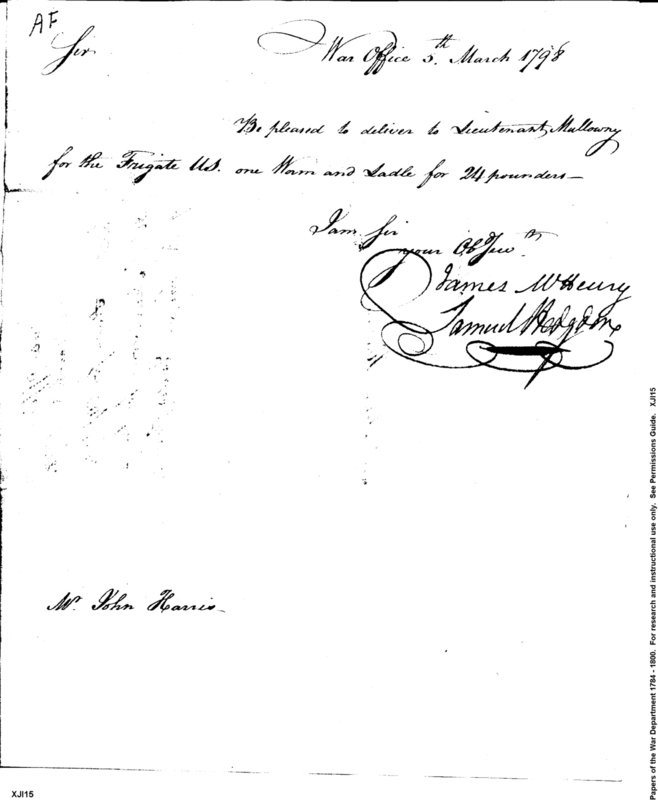 AF
Sir War Office 5th. March 1798
Be pleased to deliver to Lieutenant Mullowny
for the Frigate U.S. one Worm and Ladle for 24 pounders—
I am Sir
your Ob
James McHenry
Samuel Hodgdon
Mr. John Harris—
XJI15
Papers of the War Department 1784 - 1800. For research and instructional use only. See Permissions Guide. XJI15